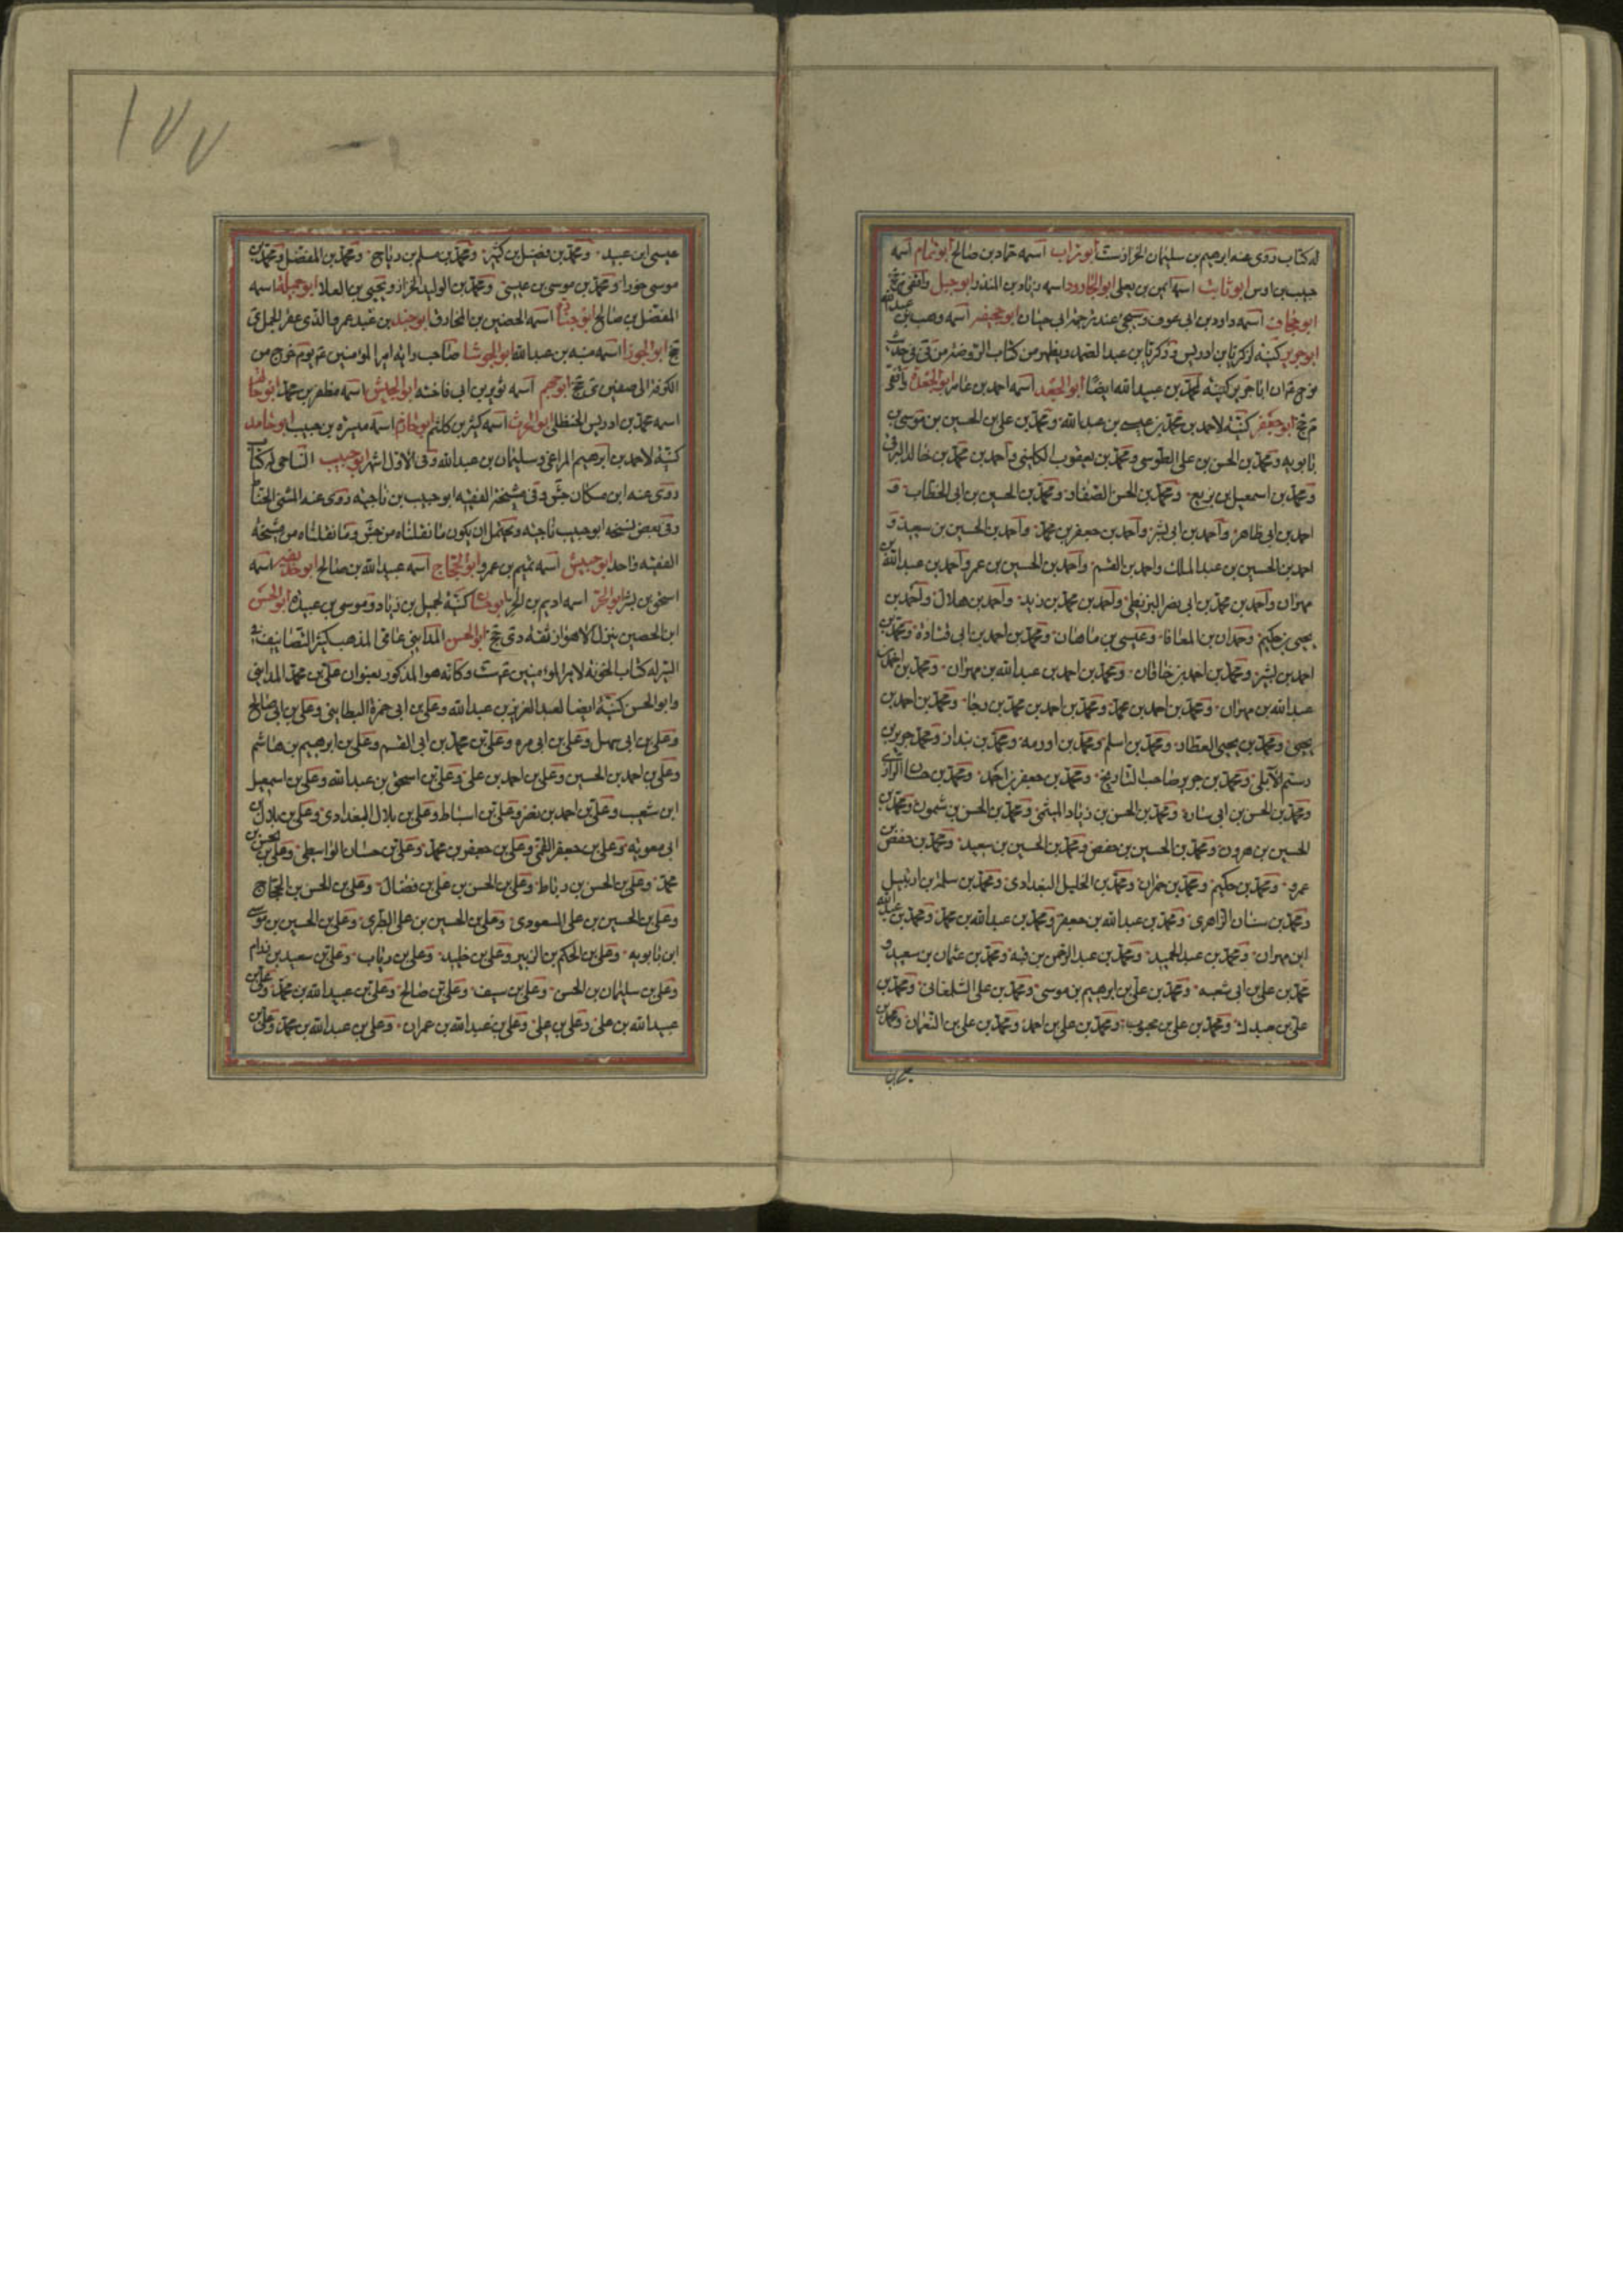 له كتاب روى عنه ابرهيم بن سليمان الخزاز ست ابو تراب اسمه حماد بن صالح ابو تمام اسمه
حبيب بن اوس ابو ثابت اسمه ايمن بن يعلى ابو الجارود اسمه زياد بن المنذر ابو جبل واقفى
ابو جحاف اسمه داود بن ابى عوف وسيجئ عند ترجمة ابى حيان ابو جحيفه اسمه وهب بن عبد الله
ابو جرير كنية لزكريا بن ادريس وزكريا بن عبد الصمد ويظهر من كتاب الروضة من فى فى حديث
نوح ان ابا جرير كنية لمحمد بن عبيد الله ايضا ابو الجعد اسمه احمد بن عامر ابو الجعدة واقفى
م جخ ابو جعفر كنية لاحمد بن محمد بن عيسى بن عبد الله ومحمد بن على بن الحسين بن موسى بن
بابويه ومحمد بن الحسن بن على الطوسى ومحمد بن يعقوب الكلينى واحمد بن محمد بن خالد البرقى
ومحمد بن اسمعيل بن بزيع ومحمد بن الحسن الصفار ومحمد بن الحسين بن ابى الخطاب و
احمد بن ابى طاهر واحمد بن ابى بشر واحمد بن جعفر بن محمد واحمد بن الحسين بن سعيد و
احمد بن الحسين بن عبد الملك واحمد بن القسم واحمد بن الحسين بن عمر واحمد بن عبد الله بن
مهران واحمد بن محمد بن ابى نصر البزنطى واحمد بن محمد بن زيد واحمد بن هلال واحمد بن
يحيى بن حكيم وحمدان بن المعافا وعيسى بن ماهان ومحمد بن احمد بن ابى قتادة ومحمد بن
احمد بن بشر ومحمد بن احمد بن خاقان ومحمد بن احمد بن عبد الله بن مهران ومحمد بن احمد بن
عبد الله بن مهران ومحمد بن احمد بن محمد ومحمد بن احمد بن محمد بن رجا ومحمد بن احمد بن
يحيى ومحمد بن يحيى العطار ومحمد بن اسلم ومحمد بن اورمه ومحمد بن بندار ومحمد جرير بن
رستم الآملى ومحمد بن جرير صاحب التاريخ ومحمد بن جعفر بن احمد ومحمد بن حسان الرازى
ومحمد بن الحسن بن ابى سارة ومحمد بن الحسن بن زياد الميثمى ومحمد بن الحسن بن شمون ومحمد بن
الحسين بن هرون ومحمد بن الحسين بن حفص ومحمد بن الحسين بن سعيد ومحمد بن حفص بن
عمرو ومحمد بن حكيم ومحمد بن حمران ومحمد بن الخليل البغدادى ومحمد بن سلمة بن ارتبيل
ومحمد بن سنان الزاهرى ومحمد بن عبد الله بن جعفر ومحمد بن عبد الله بن محمد ومحمد بن عبد الله
ابن مهران ومحمد بن عبد الحميد ومحمد بن عبد الرحمن بن قبه ومحمد بن عثمان بن سعيد و
محمد بن على بن ابى شعبه ومحمد بن على بن ابرهيم بن موسى ومحمد بن على الشلمغانى ومحمد بن
على بن عبدك ومحمد بن على بن محبوب ومحمد بن على بن احمد ومحمد بن على بن النعمان ومحمد بن
١٧٧
عيسى بن عبيد ومحمد بن فضيل بن كثير ومحمد بن مسلم بن رباح ومحمد بن المفضل ومحمد بن
موسى خورا ومحمد بن موسى بن عيسى ومحمد بن الوليد الخزاز ويحيى بن العلا ابو جميلة اسمه
المفضل بن صالح ابو جنادة اسمه الحصين بن المخارق ابو جند بن عبد عمرو الذى عقر الجمل ى
جخ ابو الجوزا اسمه منبه بن عبد الله ابو الجوشا صاحب راية امير المؤمنين ع يوم خرج من
الكوفة الى صفين ى جخ ابو جهم اسمه ثوير بن ابى فاخته ابو الجيش اسمه مظفر بن محمد ابو حاتم
اسمه محمد بن ادريس الحنظلى ابو الحرث اسمه كثير بن كلثم ابو حازم اسمه ميسرة بن حبيب ابو حامد
كنية لاحمد بن ابرهيم المراغى وسليمان بن عبد الله وفى الاول اشهر ابو حبيب النباجى له كتاب
روى عنه ابن مسكان جش وفى مشيخة الفقيه ابو حبيب بن ناجيه روى عنه المثنى الحناط
وفى بعض نسخه ابو حبيب ناجيه ويحتمل ان يكون ما نقلناه من جش وما نقلناه من مشيخة
الفقيه واحد ابو حبيش اسمه تميم بن عمرو ابو الحجاج اسمه عبيد الله بن صالح ابو حذيفه اسمه
اسحق بن بشر ابو الحر اسمه اديم بن الحر ابو حسان كنية لجميل بن زياد وموسى بن عبيدة ابو الحسن
ابن الحصين ينزل الاهواز ثقة دى جخ ابو الحسن المداينى عامى المذهب كثير التصانيف
السير له كتاب الخونة لامير المؤمنين ع ست وكانه هو المذكور بعنوان على بن محمد المداينى
وابو الحسن كنية ايضا لعبد العزيز بن عبد الله وعلى بن ابى حمزة البطاينى وعلى بن ابى صالح
وعلى بن ابى سهل وعلى بن ابى مره وعلى بن محمد بن ابى القسم وعلى بن ابرهيم بن هاشم
وعلى بن احمد بن الحسين وعلى بن احمد بن على وعلى بن اسحق بن عبد الله وعلى بن اسمعيل
ابن شعيب وعلى بن احمد بن نصر وعلى بن اسباط وعلى بن بلال البغدادى وعلى بن بلال بن
ابى معويه وعلى بن جعفر القمى وعلى بن جعفر بن محمد وعلى بن حسان الواسطى وعلى بن الحسن بن
محمد وعلى بن الحسن بن رباط وعلى بن الحسن بن على بن فضال وعلى بن الحسن بن الحجاج
وعلى بن الحسين بن على المسعودى وعلى بن الحسين بن على الطبرى وعلى بن الحسين بن موسى
ابن بابويه وعلى بن الحكم بن الزبير وعلى بن خليد وعلى بن رياب وعلى بن سعيد بن رزام
وعلى بن سليمان بن الحسن وعلى بن سيف وعلى بن صالح وعلى بن عبيد الله بن محمد وعلى بن
عبيد الله بن على وعلى بن على وعلى بن عبد الله بن عمران وعلى بن عبد الله بن محمد وعلى بن